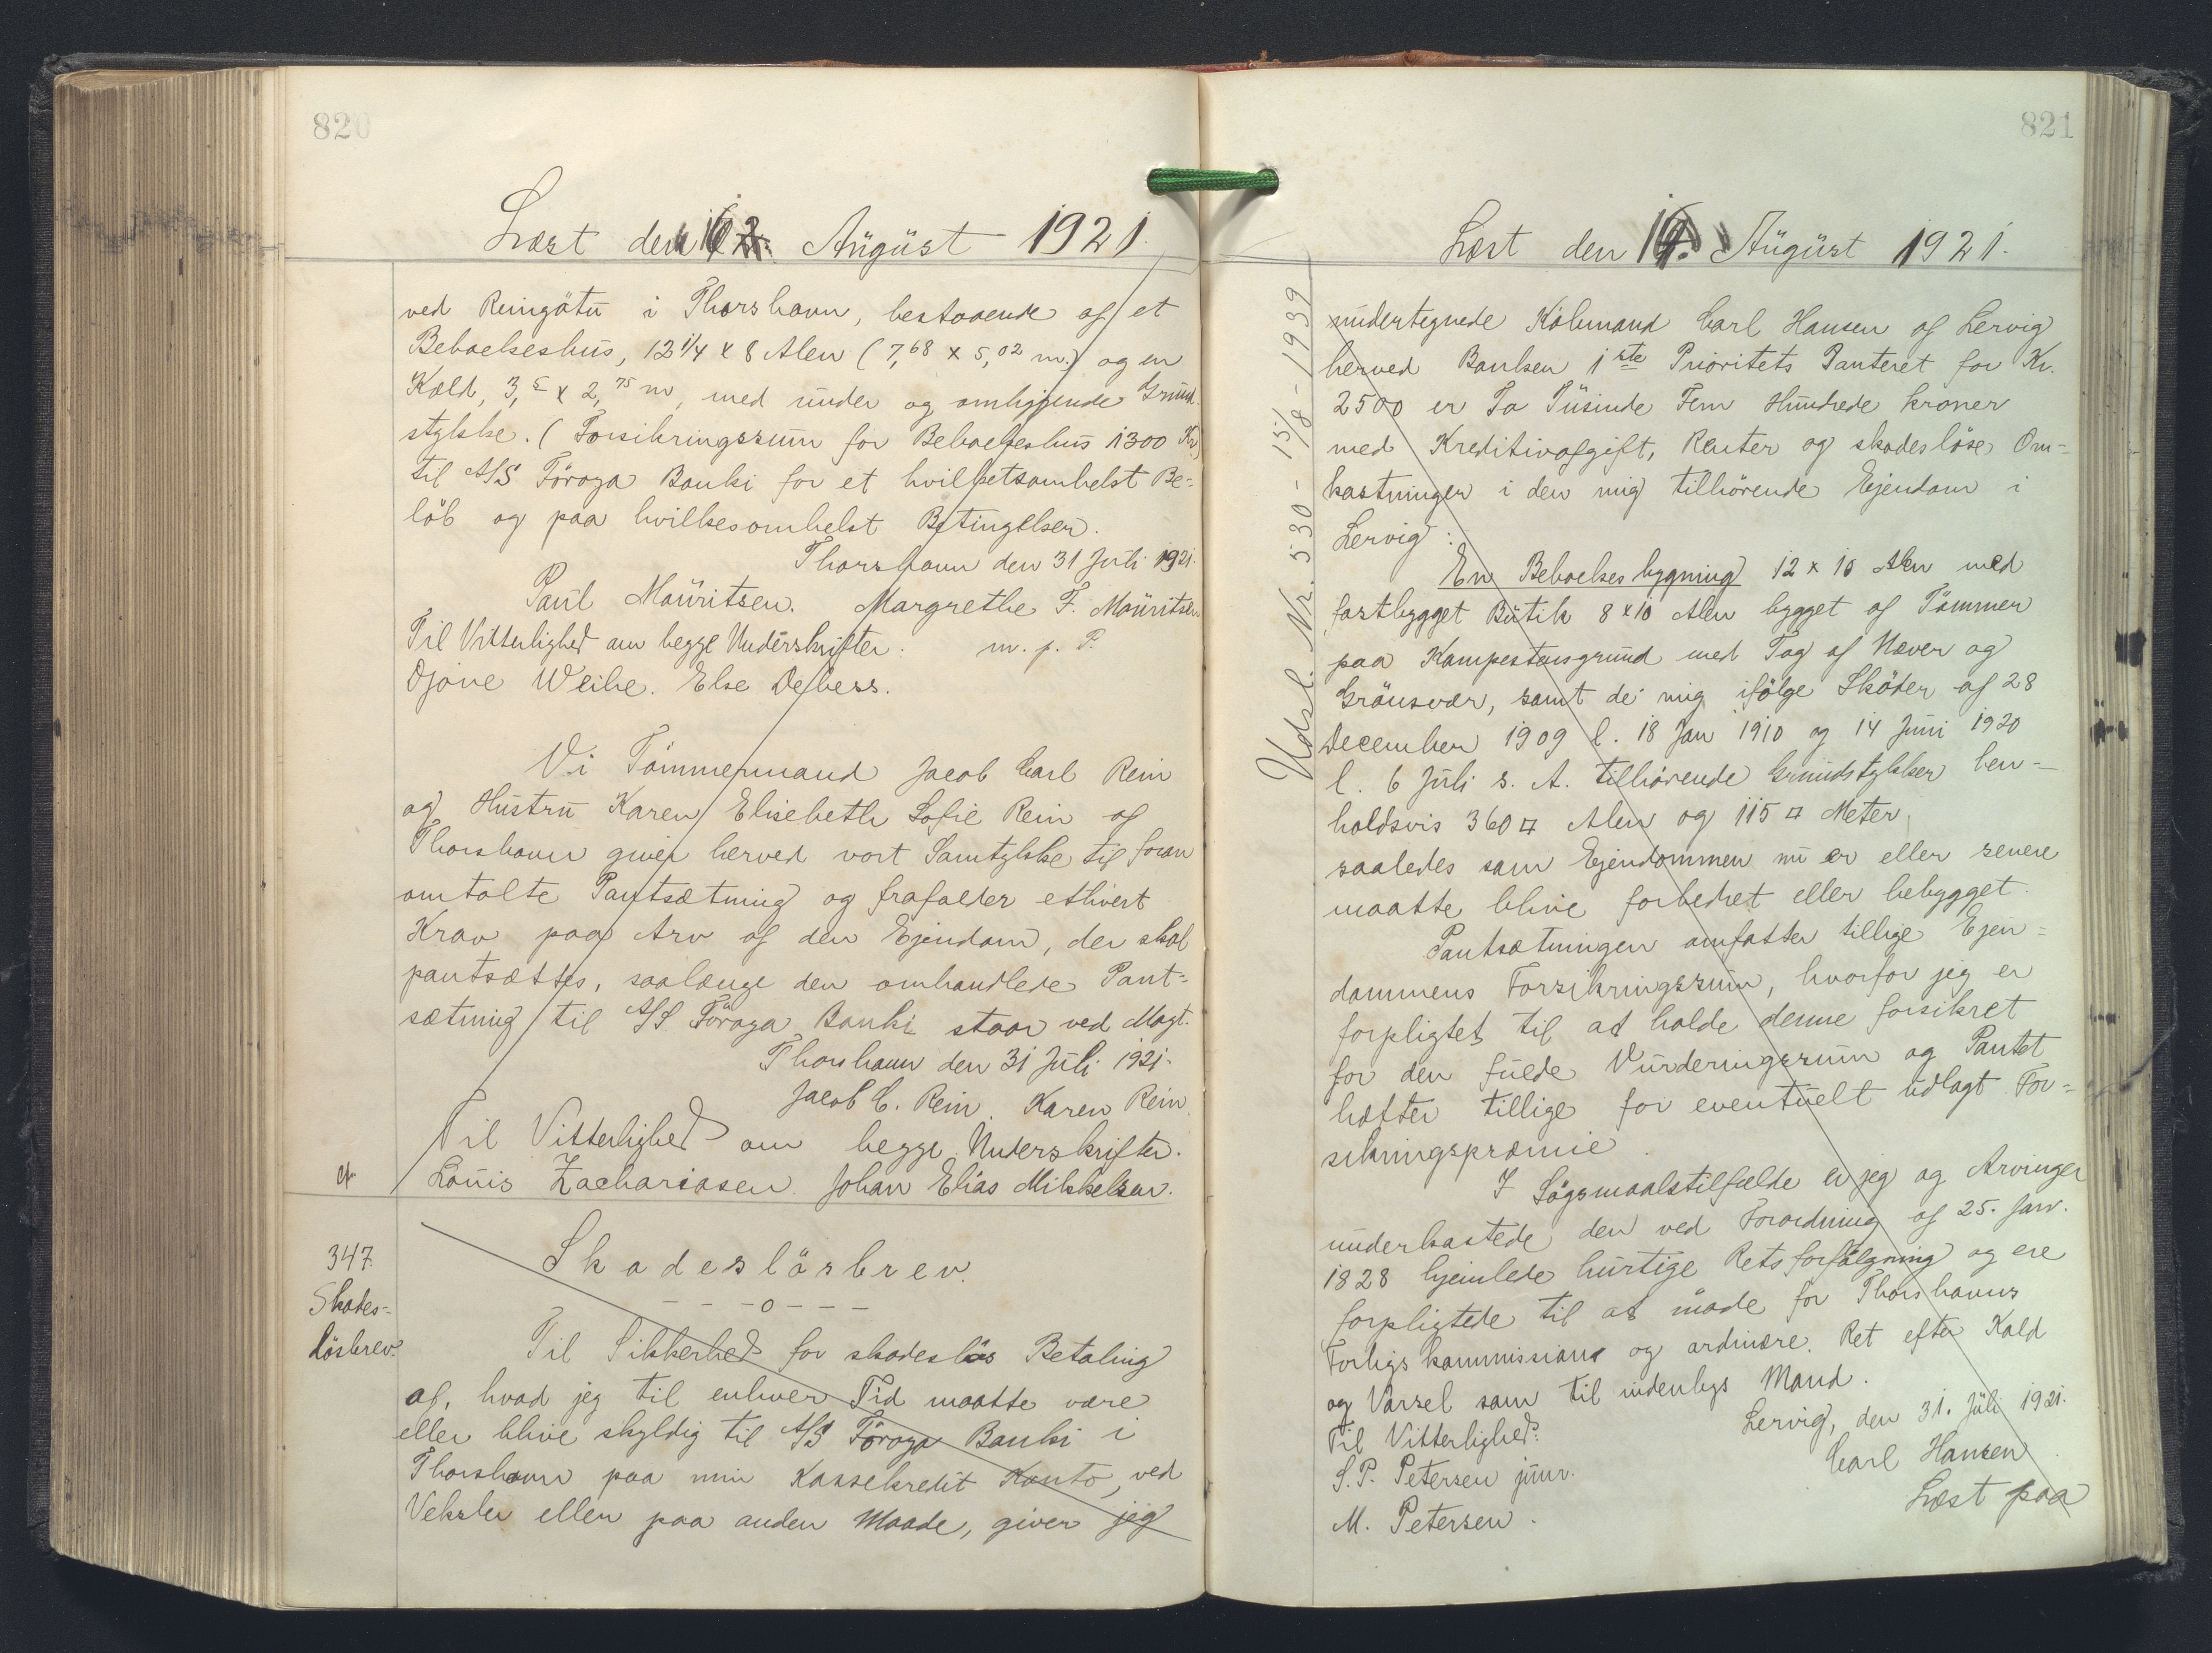 820
Læst den 16. August 1921.
ved Reingötu i Thorshavn, bestaaende af et
Beboelseshus, 12 1/4 x 8 Alen (7,68 x 5,02 m.) og en
Kold, 3,5 x 2,75 m, med under og omliggende Grund-
stykke. (Forsikringssum for Beboelseshus 1300 Kr)
til A/S Föroya Banki for et hvilketsomhelst Be-
löb og paa hvilkesomhelst Betingelser.
Thorshavn den 31 Juli 1921.
Paul Mouritsen. Margrethe F. Mouritsen
Til Vitterlighed om begge Underskrifter. m. f. P.
Djone Weihe. Else Debess.
Vi Tömmermand Jacob Carl Rein
og Hustru Karen Elisebeth Sofie Rein af
Thorshavn giver herved vort Samtykke til foran
omtalte Pantsætning og frafalder ethvert
Krav paa Arv af den Ejendom, der skal
pantsættes, saalænge den omhandlede Pant-
sætning til A/S. Föroya Banki staar ved Magt.
Thorshavn den 31 Juli 1921.
Jacob C. Rein. Karen Rein.
Til Vitterlighed om begge Underskrifter.
Louis Zachariasen. Johan Elias Mikkelsen.
347.
Skades-
lösbrev.
Skadeslösbrev.
- - -o- - -
Til Sikkerhed for skadeslös Betaling
af, hvad jeg til enhver Tid maatte være
eller blive skyldig til A/S Föroya Banki i
Thorshavn paa min Kassekredit Konto, ved
Veksler eller paa anden Maade, giver jeg
821
Læst den 16. August 1921.
Udsl. Nr. 530 - 15/8 - 1939
undertegnede Köbmand Carl Hansen af Lervig
herved Banken 1ste Prioritets Panteret for Kr.
2500 er To Tusinde Fem Hundrede Kroner
med Kreditivafgift, Renter og skadeslöse Om-
kostninger i den mig tilhörende Ejendom i
Lervig:
En Beboelsesbygning 12 x 10 Alen med
fastbygget Butik 8 x 10 Alen bygget af Tömmer
paa Kampestensgrund med Tag af Næver og
Grönsvær, samt de mig ifölge Sköder af 28
December 1909 l. 18 Jan 1910 og 14 Juni 1920
l. 6 Juli s. A. tilhörende Grundstykker hen-
holdsvis 360 □ Alen og 115 □ Meter,
saaledes som Ejendommen nu er eller senere
maatte blive forbedret eller bebygget.
Pantsætningen omfatter tillige Ejen-
dommens Forsikringssum, hvorfor jeg er
forpligtet til at holde denne forsikret
for den fulde Vurderingssum og Pantet
hæfter tillige for eventuelt udlagt For-
sikringspræmie.
I Sögsmaalstilfælde er jeg og Arvinger
underkastede den ved Forordning af 25. Jan.
1828 hjemlede hurtige Retsforfölgning og ere
forpligtede til at möde for Thorshavns
Forligskommission og ordinære Ret efter Kald
og Varsel som til indenbys Mand.
Lervig, den 31. Juli 1921.
Til Vitterlighed:
Carl Hansen
S. P. Petersen junr.
M. Petersen.
Læst paa